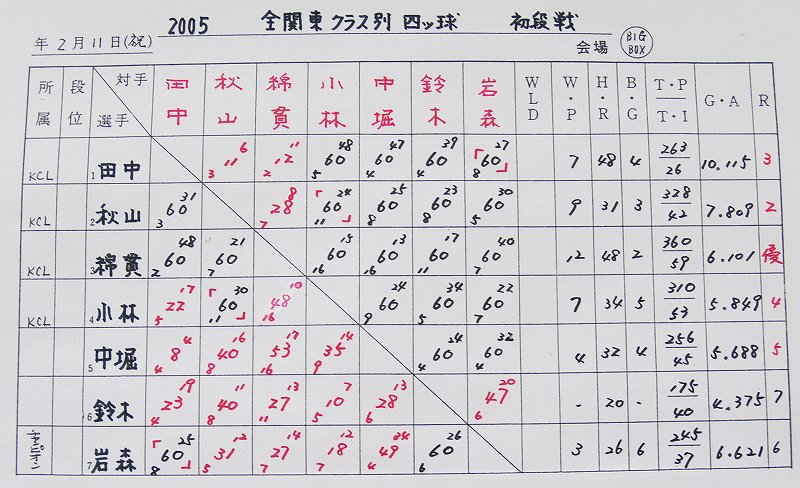 2005 全関東クラス別 四ッ球 初段戦
年 2月11日(祝) 会場 BIG BOX
所属 段位 対手 選手 田中 秋山 綿貫 小林 中堀 鈴木 岩森 WLD W・P H・R B・G T・P/T・I G・A R
KCL 1 田中 6 11 3 11 12 2 48 60 5 47 60 4 39 60 4 27 「60」 8 7 48 4 263/26 10.115 3
KCL 2 秋山 31 60 3 8 28 7 24 「60」 11 25 60 8 23 60 8 30 60 5 9 31 3 328/42 7.809 2
KCL 3 綿貫 48 60 2 21 60 7 15 60 16 13 60 16 17 60 11 40 60 7 12 48 2 360/59 6.101 優
KCL 4 小林 17 22 5 30 「60」 11 10 48 16 24 60 9 34 60 5 22 60 7 7 34 5 310/53 5.849 4
5 中堀 4 8 4 16 40 8 17 53 16 14 35 9 24 60 6 32 60 4 4 32 4 256/45 5.688 5
6 鈴木 19 23 4 11 40 8 13 27 11 7 10 5 13 28 6 20 47 6 - 20 - 175/40 4.375 7
チャンピオン 7 岩森 25 「60」 8 12 31 5 14 27 7 12 18 7 24 49 4 26 60 6 3 26 6 245/37 6.621 6